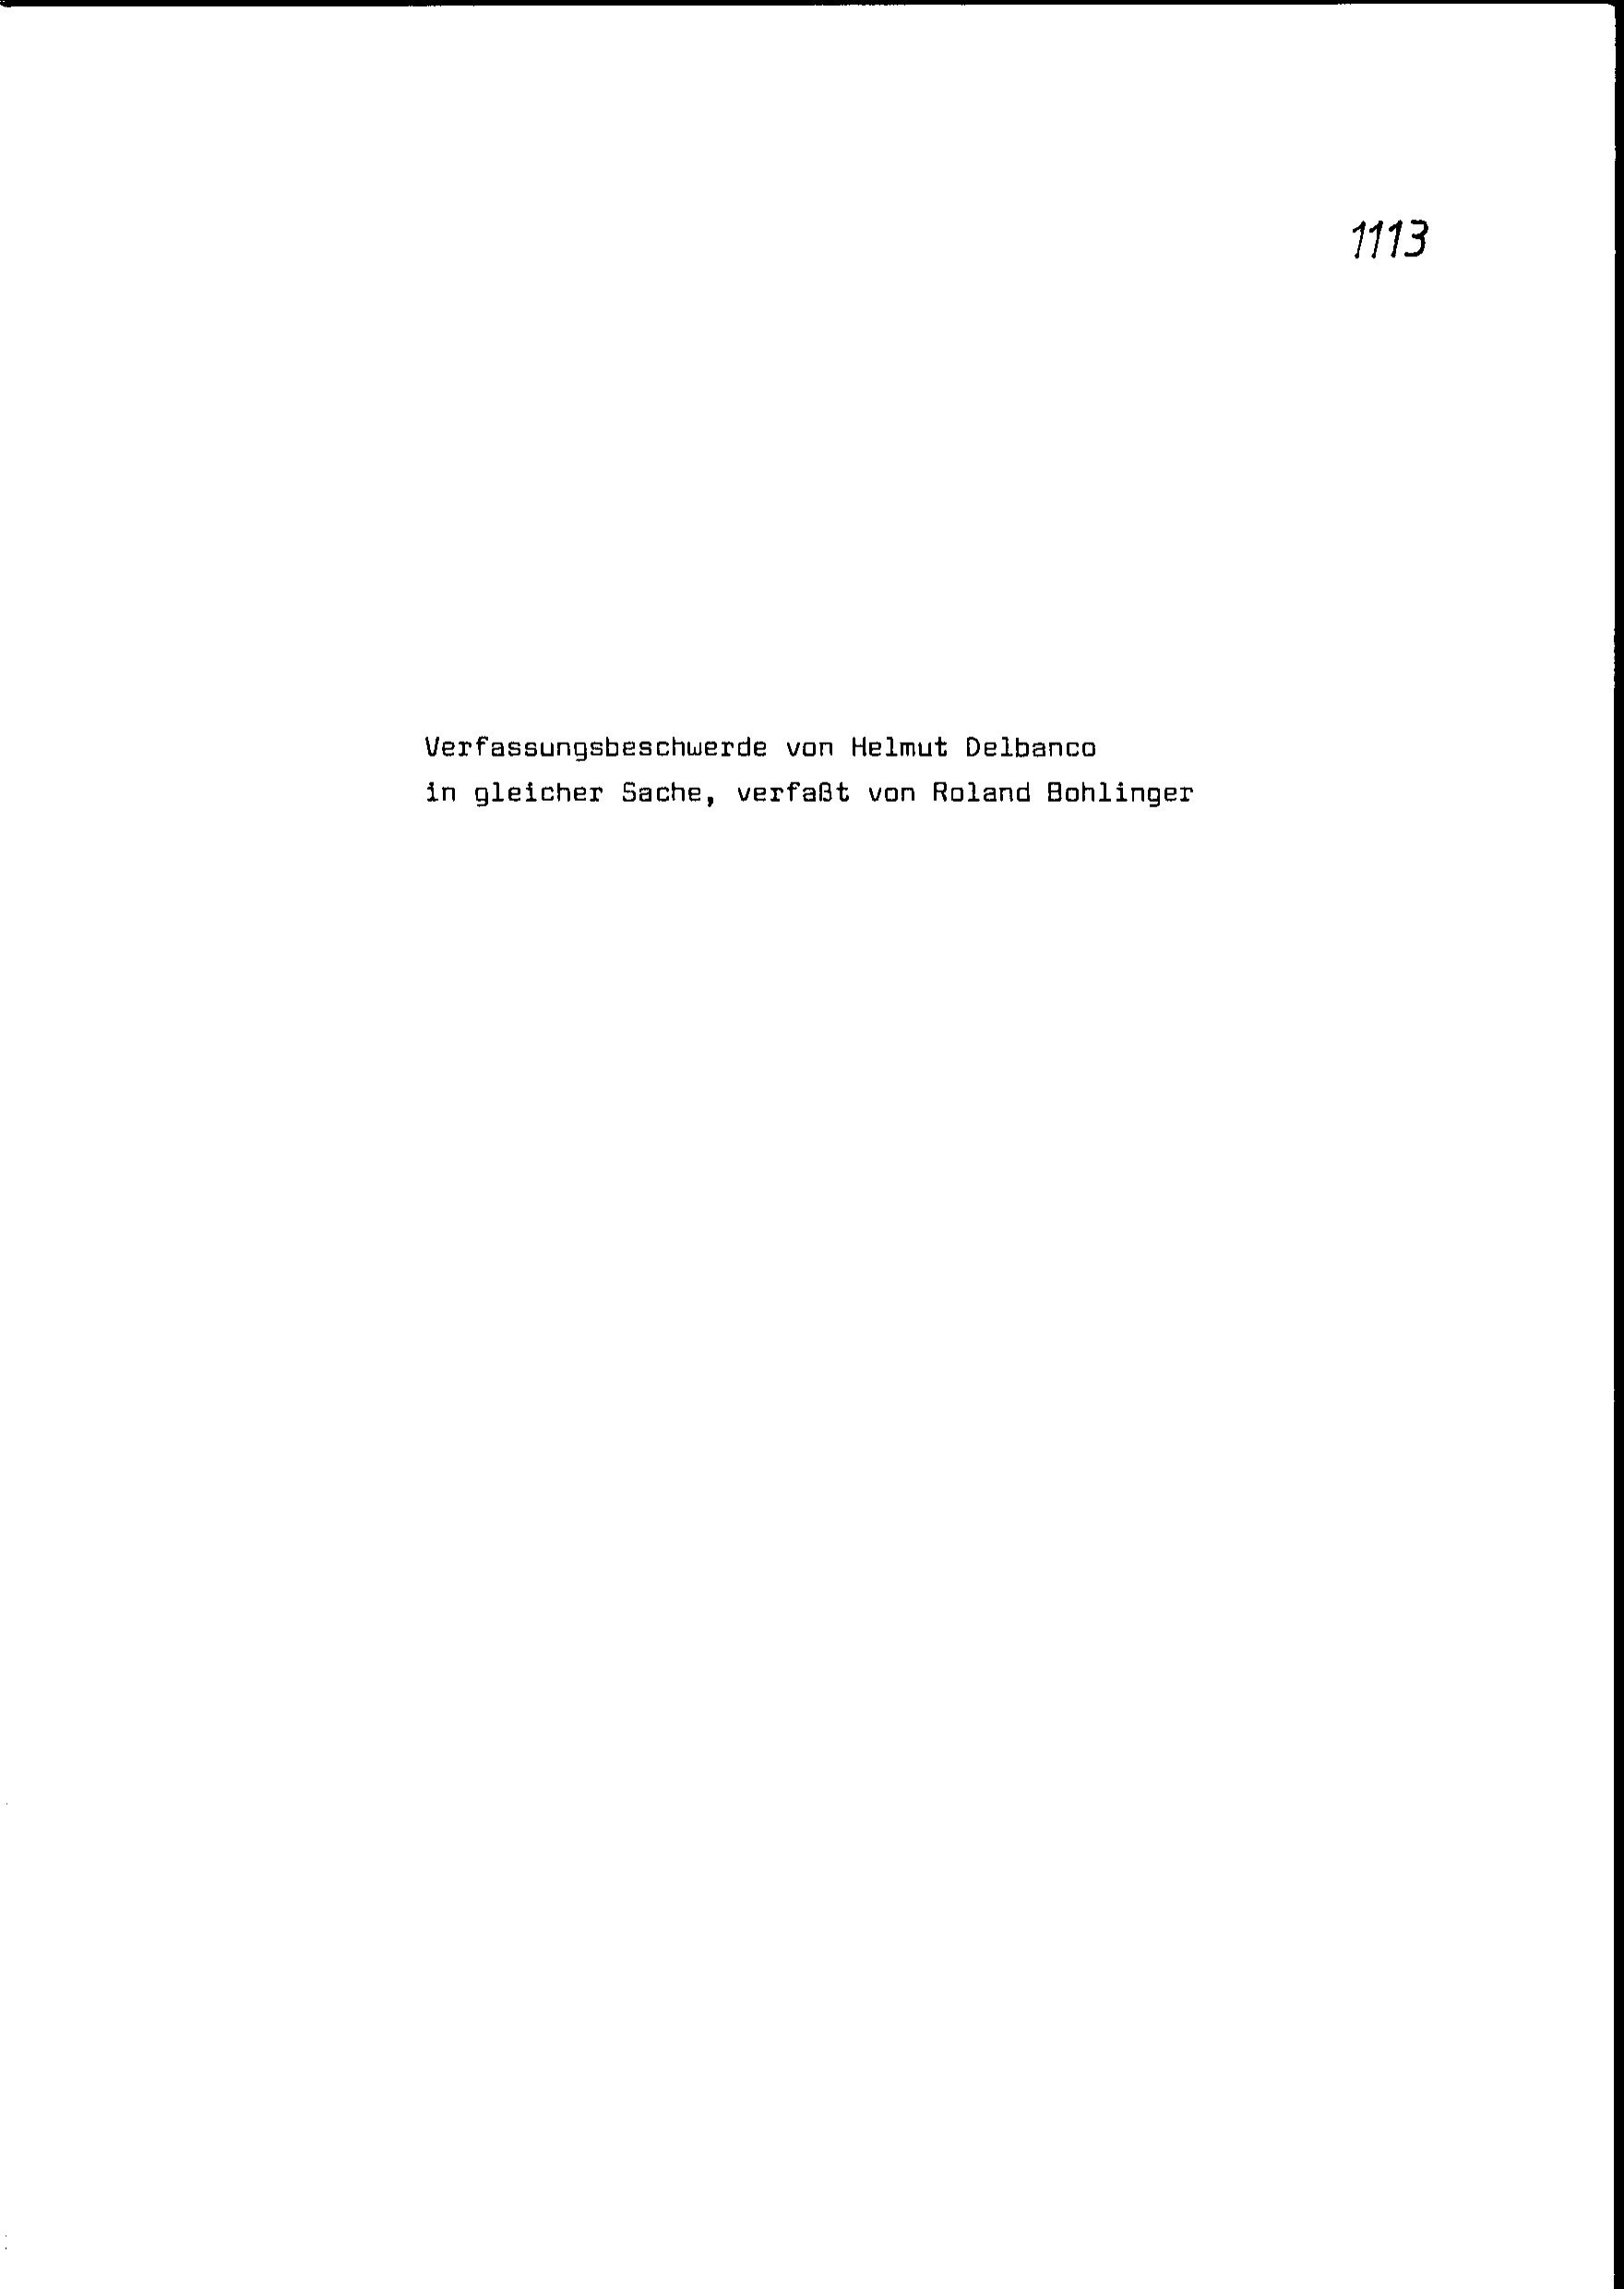 1113
Verfassungsbeschwerde von Helmut Delbanco
in gleicher Sache, verfaßt von Roland Bohlinger